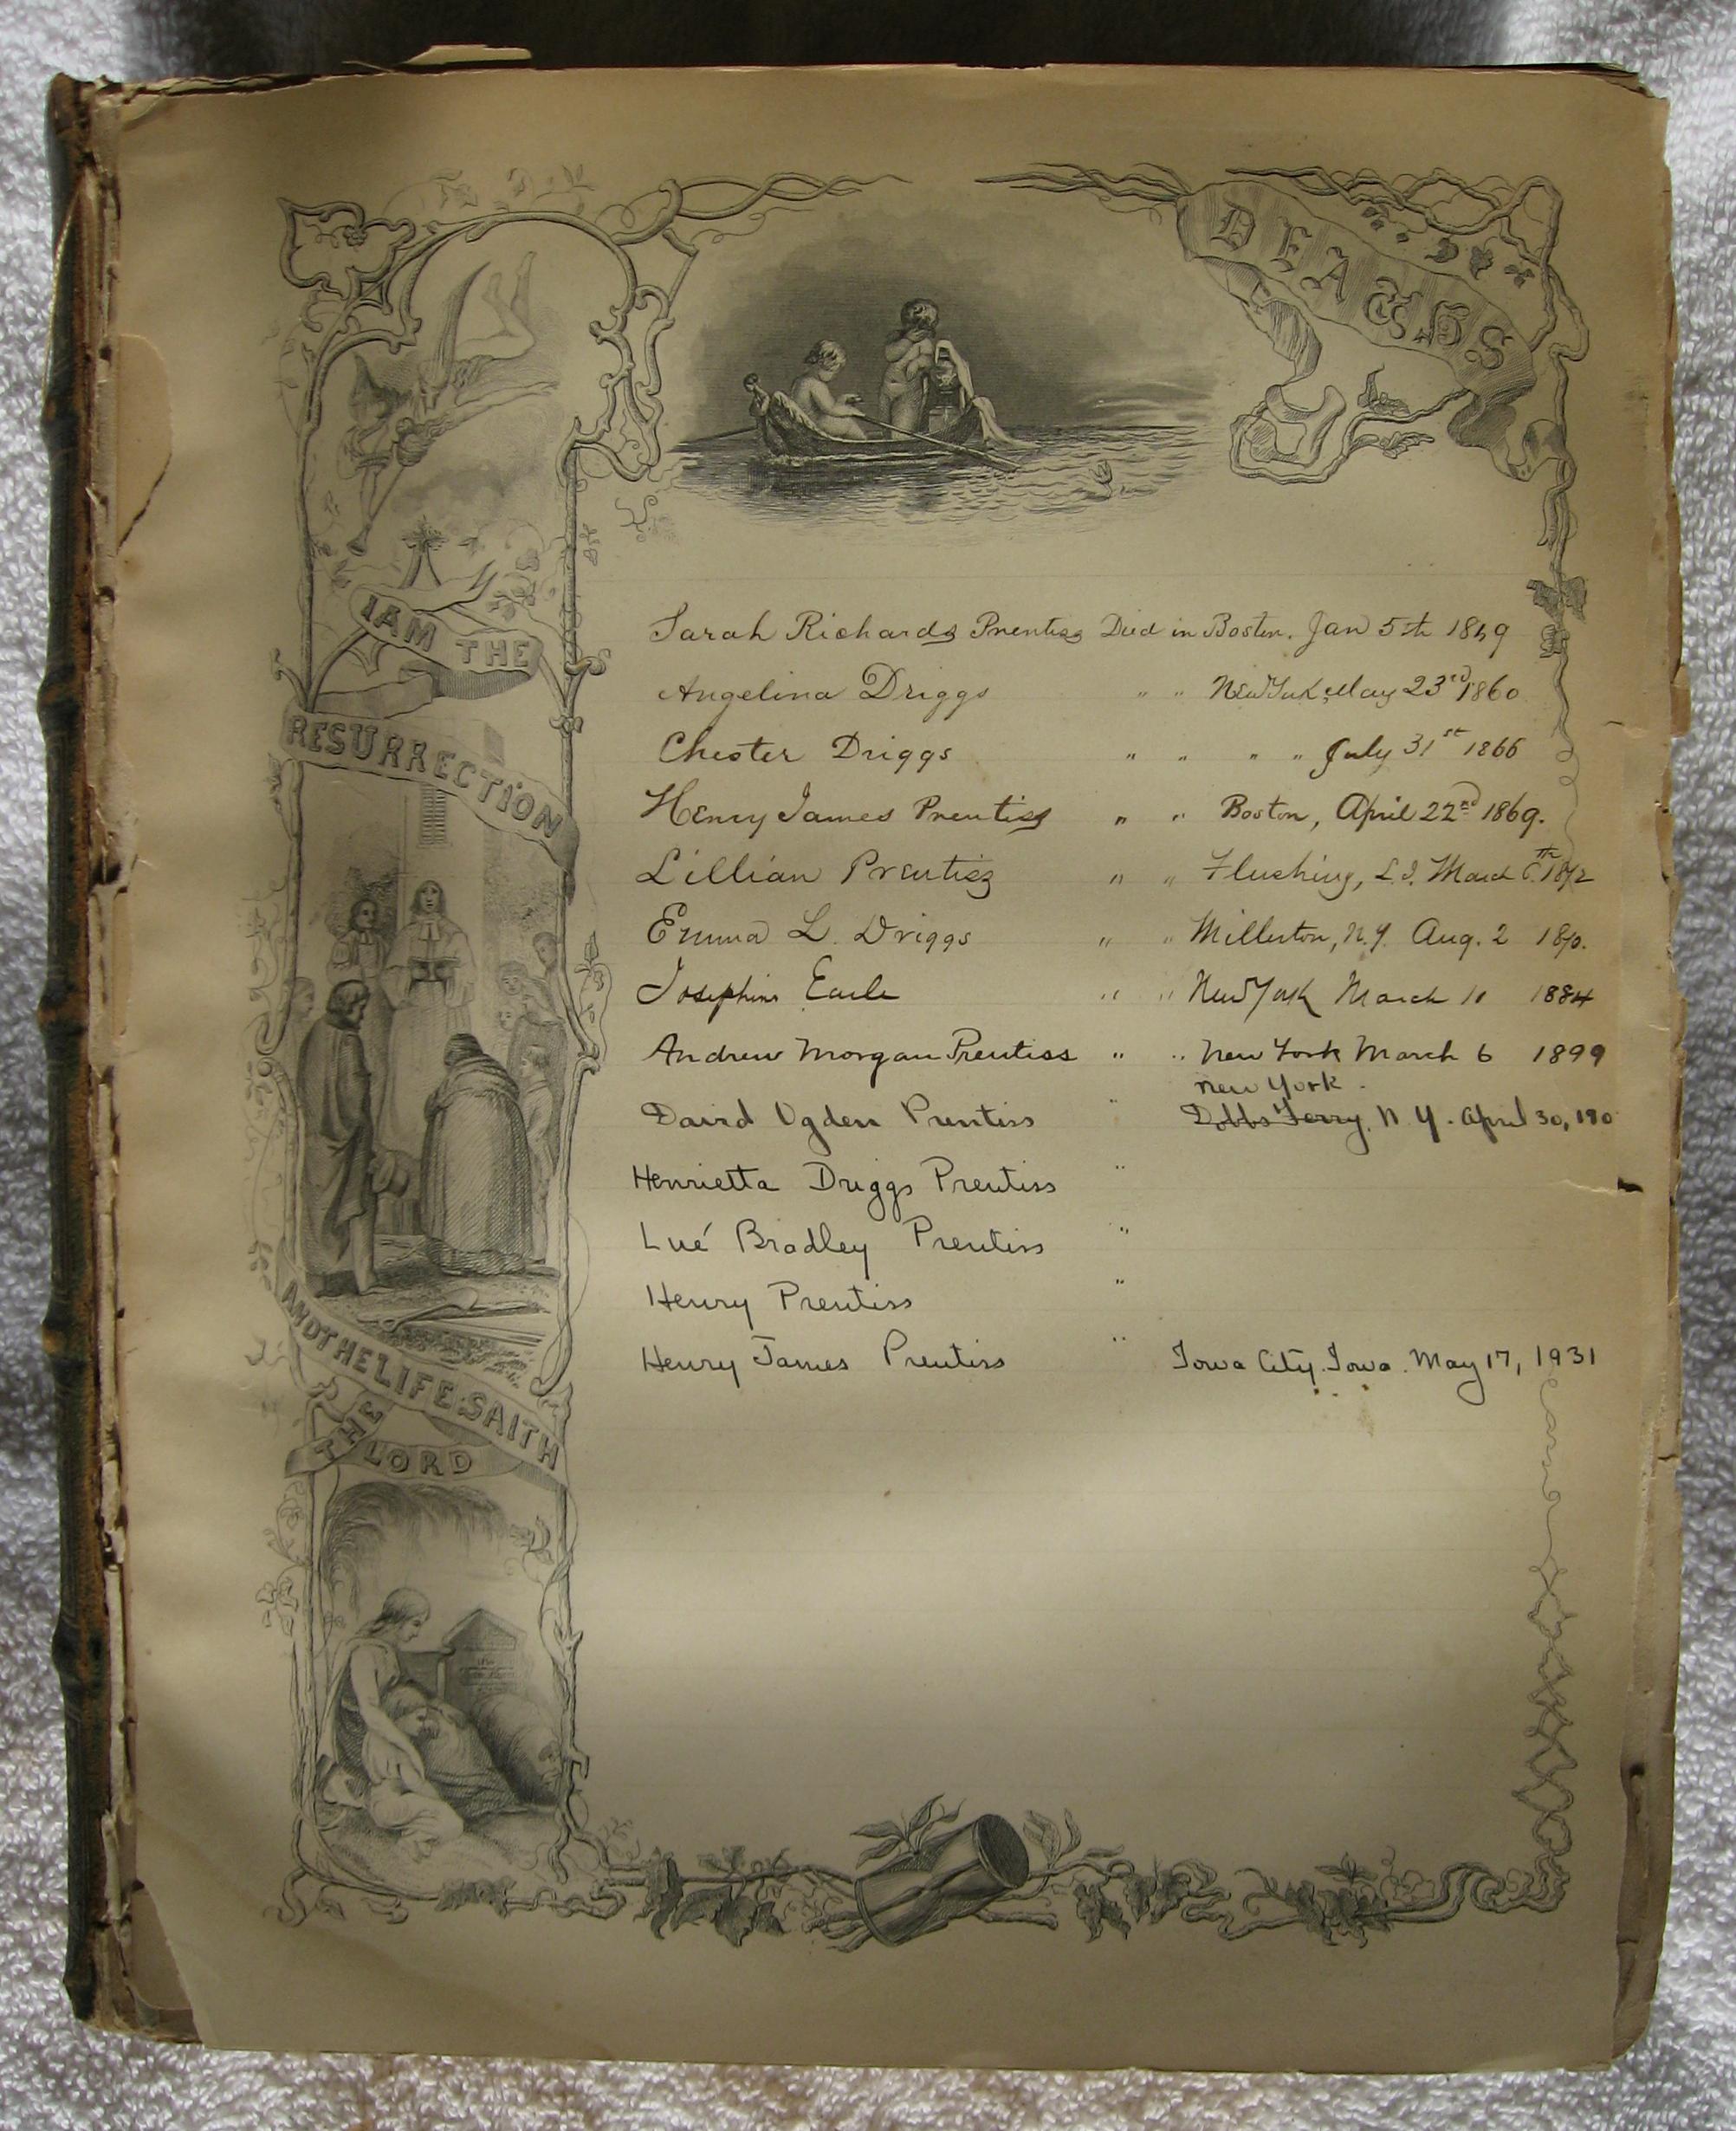 DEATHS
I AM THE
RESURRECTION
AND THE LIFE: SAITH
THE LORD
Sarah Richards Prentiss Died in Boston. Jan 5th 1849
Angelina Driggs " " New York, May 23rd 1860
Chester Driggs " " " " July 31st 1866
Henry James Prentiss " " Boston, April 22nd 1869.
Lillian Prentiss " " Flushing, L.I. March 6th 1872
Emma L. Driggs " " Millerton, N.Y. Aug. 2 1870.
Josephine Earle " " New York March 11 1884
Andrew Morgan Prentiss " " New York March 6 1899
New York.
David Ogden Prentiss " Dobbs Ferry, N.Y. April 30, 190
Henrietta Driggs Prentiss "
Lué Bradley Prentiss "
Henry Prentiss "
Henry James Prentiss " Iowa City. Iowa. May 17, 1931